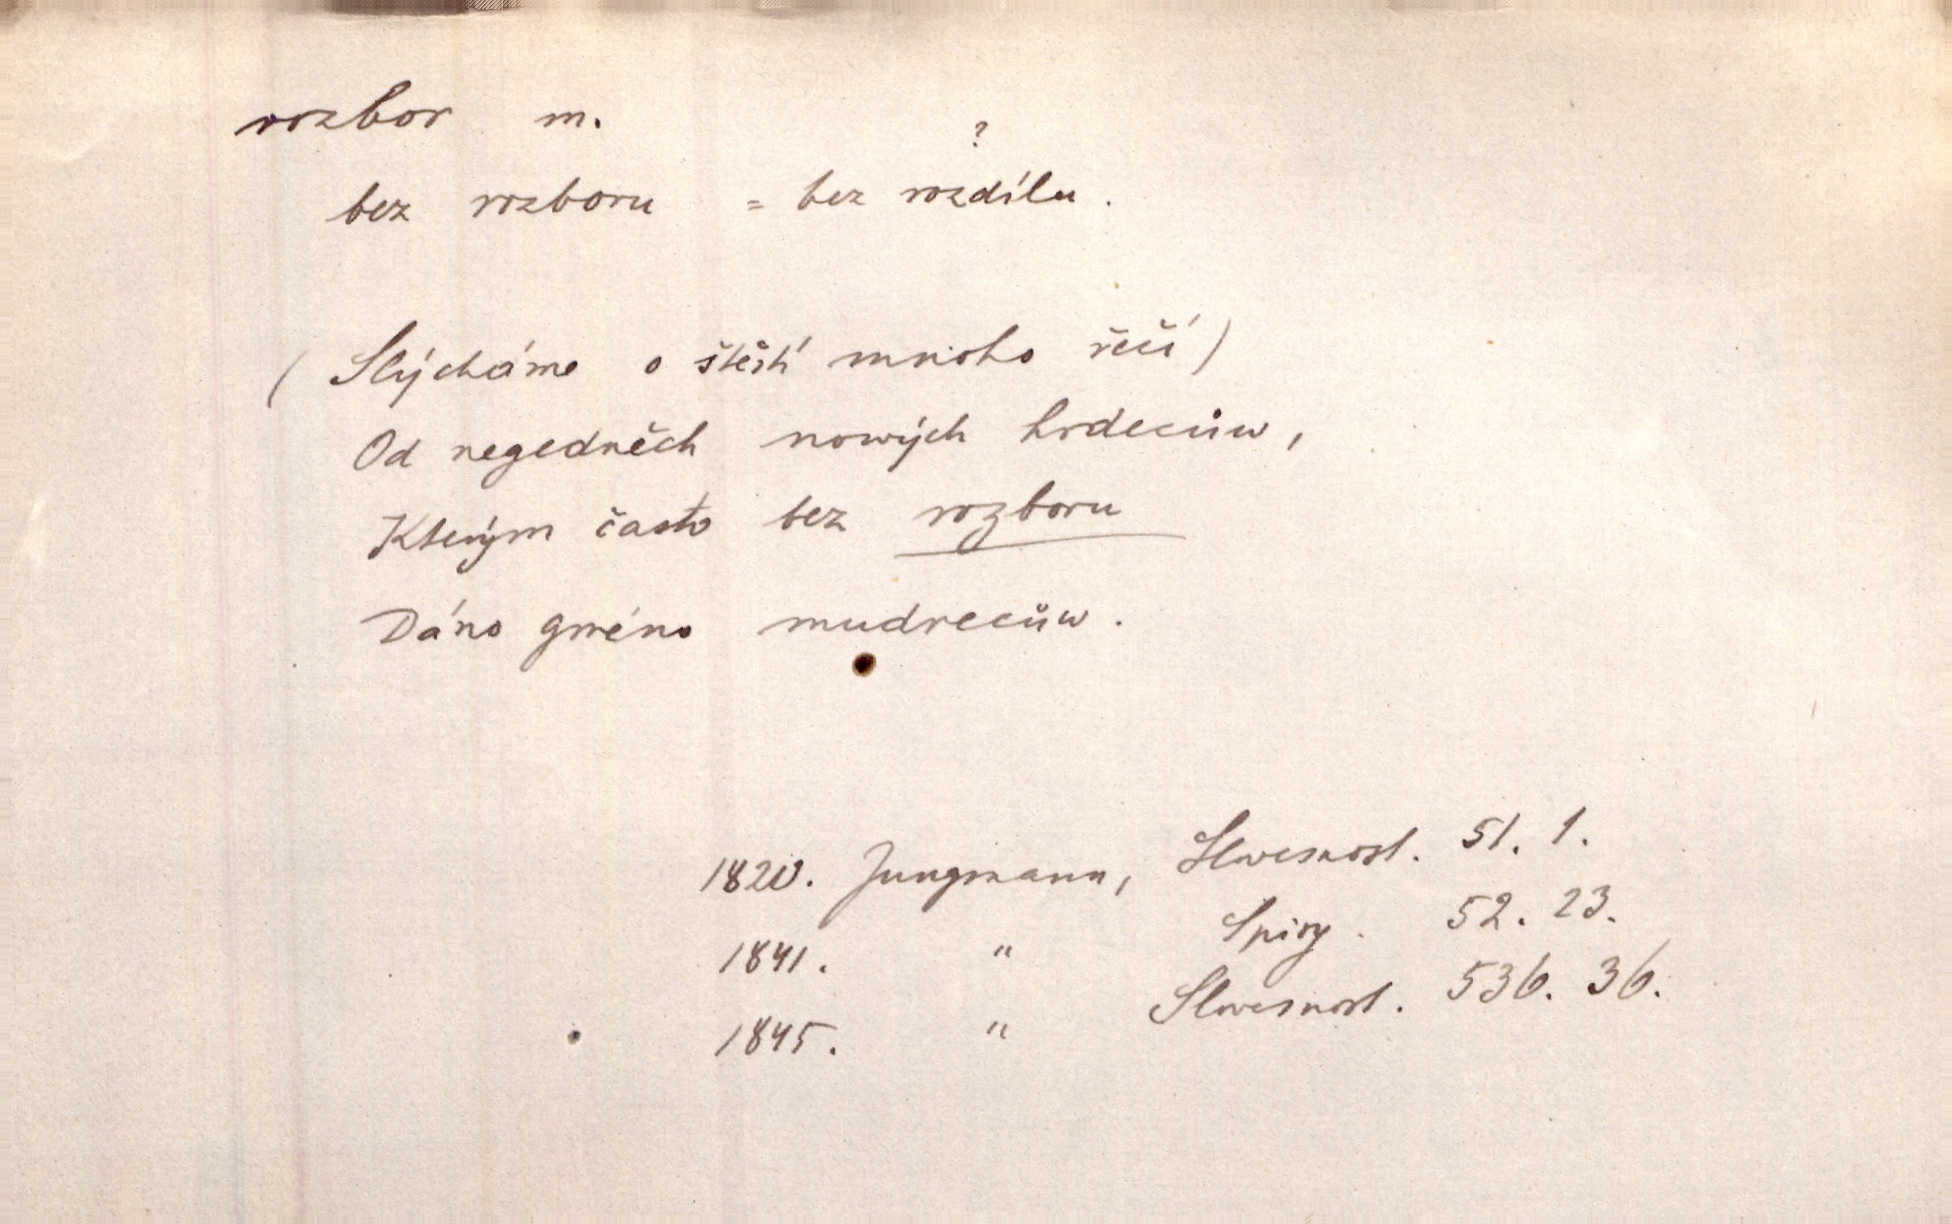 rozbor m.
?
bez rozboru = bez rozdílu.
(Slýcháme o štěstí mnoho řečí)
Od negedněch nowých hrdecůw,
Kterým často bez rozboru
Dáno gméno mudrecůw.
1820. Jungmann, Slwesnost. 51. 1.
1841. " Spisy. 52. 23.
1845. " Slwesnost. 536. 36.